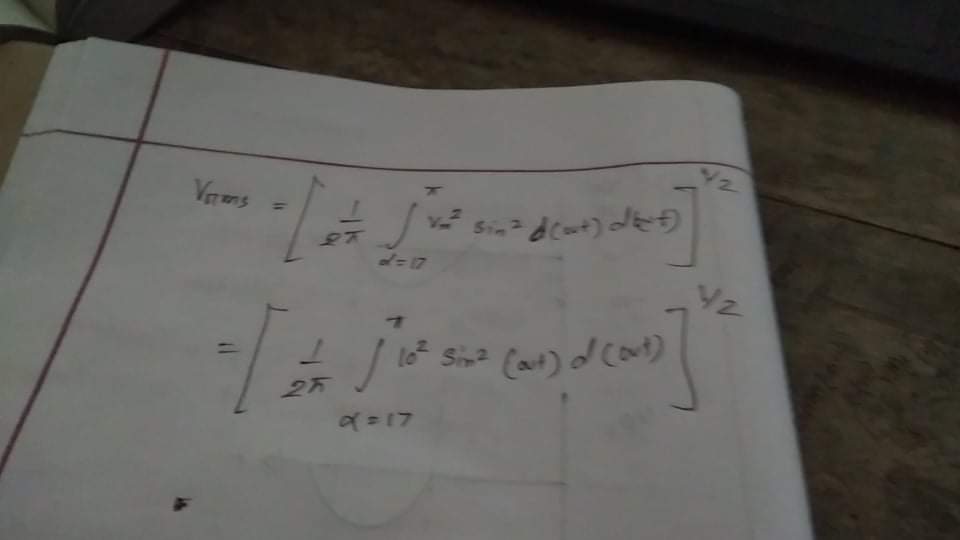 Vrms = [ 1/2π ∫_{α=17}^{π} Vm² sin² d(ωt) d(ωt) ]^{1/2}
= [ 1/2π ∫_{α=17}^{π} 10² sin² (ωt) d(ωt) ]^{1/2}